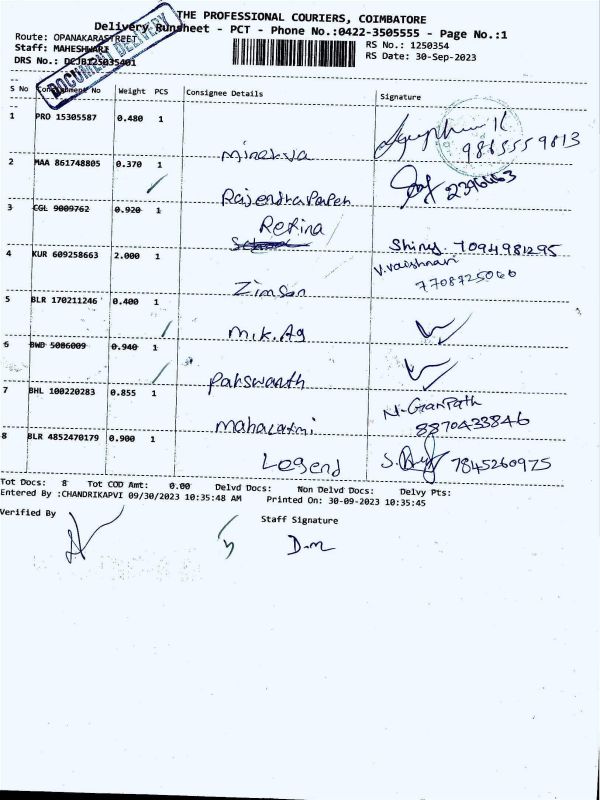 THE PROFESSIONAL COURIERS, COIMBATORE
Delivery Runsheet - PCT - Phone No.:0422-3505555 - Page No.:1
Route: OPANAKARASTREET
RS No.: 1250354
Staff: MAHESHWARI
RS Date: 30-Sep-2023
DRS No.: DCJB125035401
DOCUMENT DELIVERY
S No Consignment No Weight PCS Consignee Details Signature
1 PRO 15305587 0.480 1
Minerva 9865559813
2 MAA 861748805 0.370 1
Rajendra Papeh 2396663
3 CGL 9009762 0.920 1
Retina
Shiny 7094981295
4 KUR 609258663 2.000 1
V.Vaishnavi
Zimson 7708725060
5 BLR 170211246 0.400 1
M.K.Ag
6 BWD 5086009 0.940 1
Parswanth
7 BHL 100220283 0.855 1
N.GanPath
Mahalaxmi 8870433846
8 BLR 4852470179 0.900 1
Legend 7845260975
Tot Docs: 8 Tot COD Amt: 0.00 Delvd Docs: Non Delvd Docs: Delvy Pts:
Entered By :CHANDRIKAPVI 09/30/2023 10:35:48 AM Printed On: 30-09-2023 10:35:45
Verified By
Staff Signature